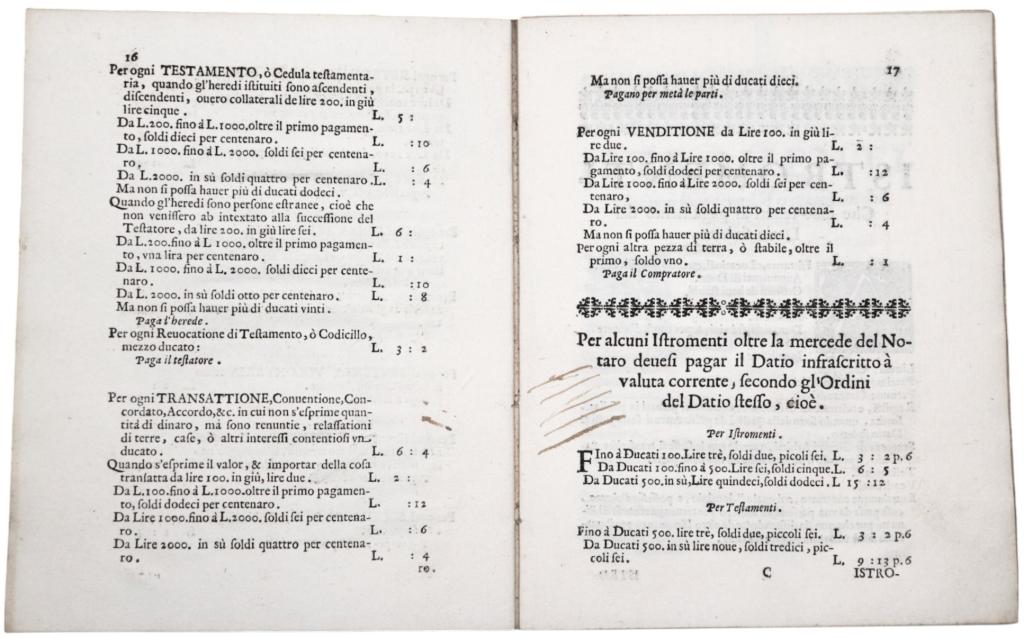 16
Per ogni TESTAMENTO, ò Cedula teſtamenta-
ria, quando gl'heredi iſtituiti ſono aſcendenti,
diſcendenti, ouero collaterali de lire 200. in giù
lire cinque. L. 5 :
Da L.200. fino à L.1000. oltre il primo pagamen-
to, ſoldi dieci per centenaro. L. : 10
Da L. 1000. fino à L. 2000. ſoldi ſei per centena-
ro. L. : 6
Da L. 2000. in sù ſoldi quattro per centenaro. L. : 4
Ma non ſi poſſa hauer più di ducati dodeci.
Quando gl'heredi ſono perſone eſtranee, cioè che
non veniſſero ab inteſtato alla ſucceſſione del
Teſtatore, da lire 200. in giù lire ſei. L. 6 :
Da L.200. fino à L 1000. oltre il primo pagamen-
to, vna lira per centenaro. L. 1 :
Da L. 1000. fino à L. 2000. ſoldi dieci per cente-
naro. L. : 10
Da L. 2000. in sù ſoldi otto per centenaro. L. : 8
Ma non ſi poſſa hauer più di ducati vinti.
Paga l'herede.
Per ogni Reuocatione di Teſtamento, ò Codicillo,
mezzo ducato: L. 3 : 2
Paga il teſtatore.
Per ogni TRANSATTIONE, Conuentione, Con-
cordato, Accordo, &c. in cui non s'eſprime quan-
tità di dinaro, mà ſono renuntie, relaſſationi
di terre, caſe, ò altri intereſſi contentioſi vn
ducato. L. 6 : 4
Quando s'eſprime il valor, & importar della coſa
tranſatta da lire 100. in giù, lire due. L. 2 :
Da L.100. fino à L.1000. oltre il primo pagamen-
to, ſoldi dodeci per centenaro. L. : 12
Da Lire 1000. fino à L.2000. ſoldi ſei per centena-
ro. L. : 6
Da Lire 2000. in sù ſoldi quattro per centena-
ro. L. : 4
ro.
17
Ma non ſi poſſa hauer più di ducati dieci.
Pagano per metà le parti.
Per ogni VENDITIONE da Lire 100. in giù li-
re due. L. 2 :
Da Lire 100. fino à Lire 1000. oltre il primo pa-
gamento, ſoldi dodeci per centenaro. L. : 12
Da Lire 1000. fino à Lire 2000. ſoldi ſei per cen-
tenaro, L. : 6
Da Lire 2000. in sù ſoldi quattro per centena-
ro. L. : 4
Ma non ſi poſſa hauer più di ducati dieci.
Per ogni altra pezza di terra, ò ſtabile, oltre il
primo, ſoldo vno. L. : 1
Paga il Compratore.
Per alcuni Iſtromenti oltre la mercede del No-
taro deueſi pagar il Datio infraſcritto à
valuta corrente, ſecondo gl'Ordini
del Datio ſteſſo, cioè.
Per Iſtromenti.
FIno à Ducati 100. Lire trè, ſoldi due, picoli ſei. L. 3 : 2 p. 6
Da Ducati 100. fino à 500. Lire ſei, ſoldi cinque. L. 6 : 5
Da Ducati 500. in sù, Lire quindeci, ſoldi dodeci. L 15 : 12
Per Teſtamenti.
Fino à Ducati 500. lire trè, ſoldi due, piccoli ſei. L. 3 : 2 p.6
Da Ducati 500. in sù lire noue, ſoldi tredici, pic-
coli ſei. L. 9 : 13 p. 6
C ISTRO-